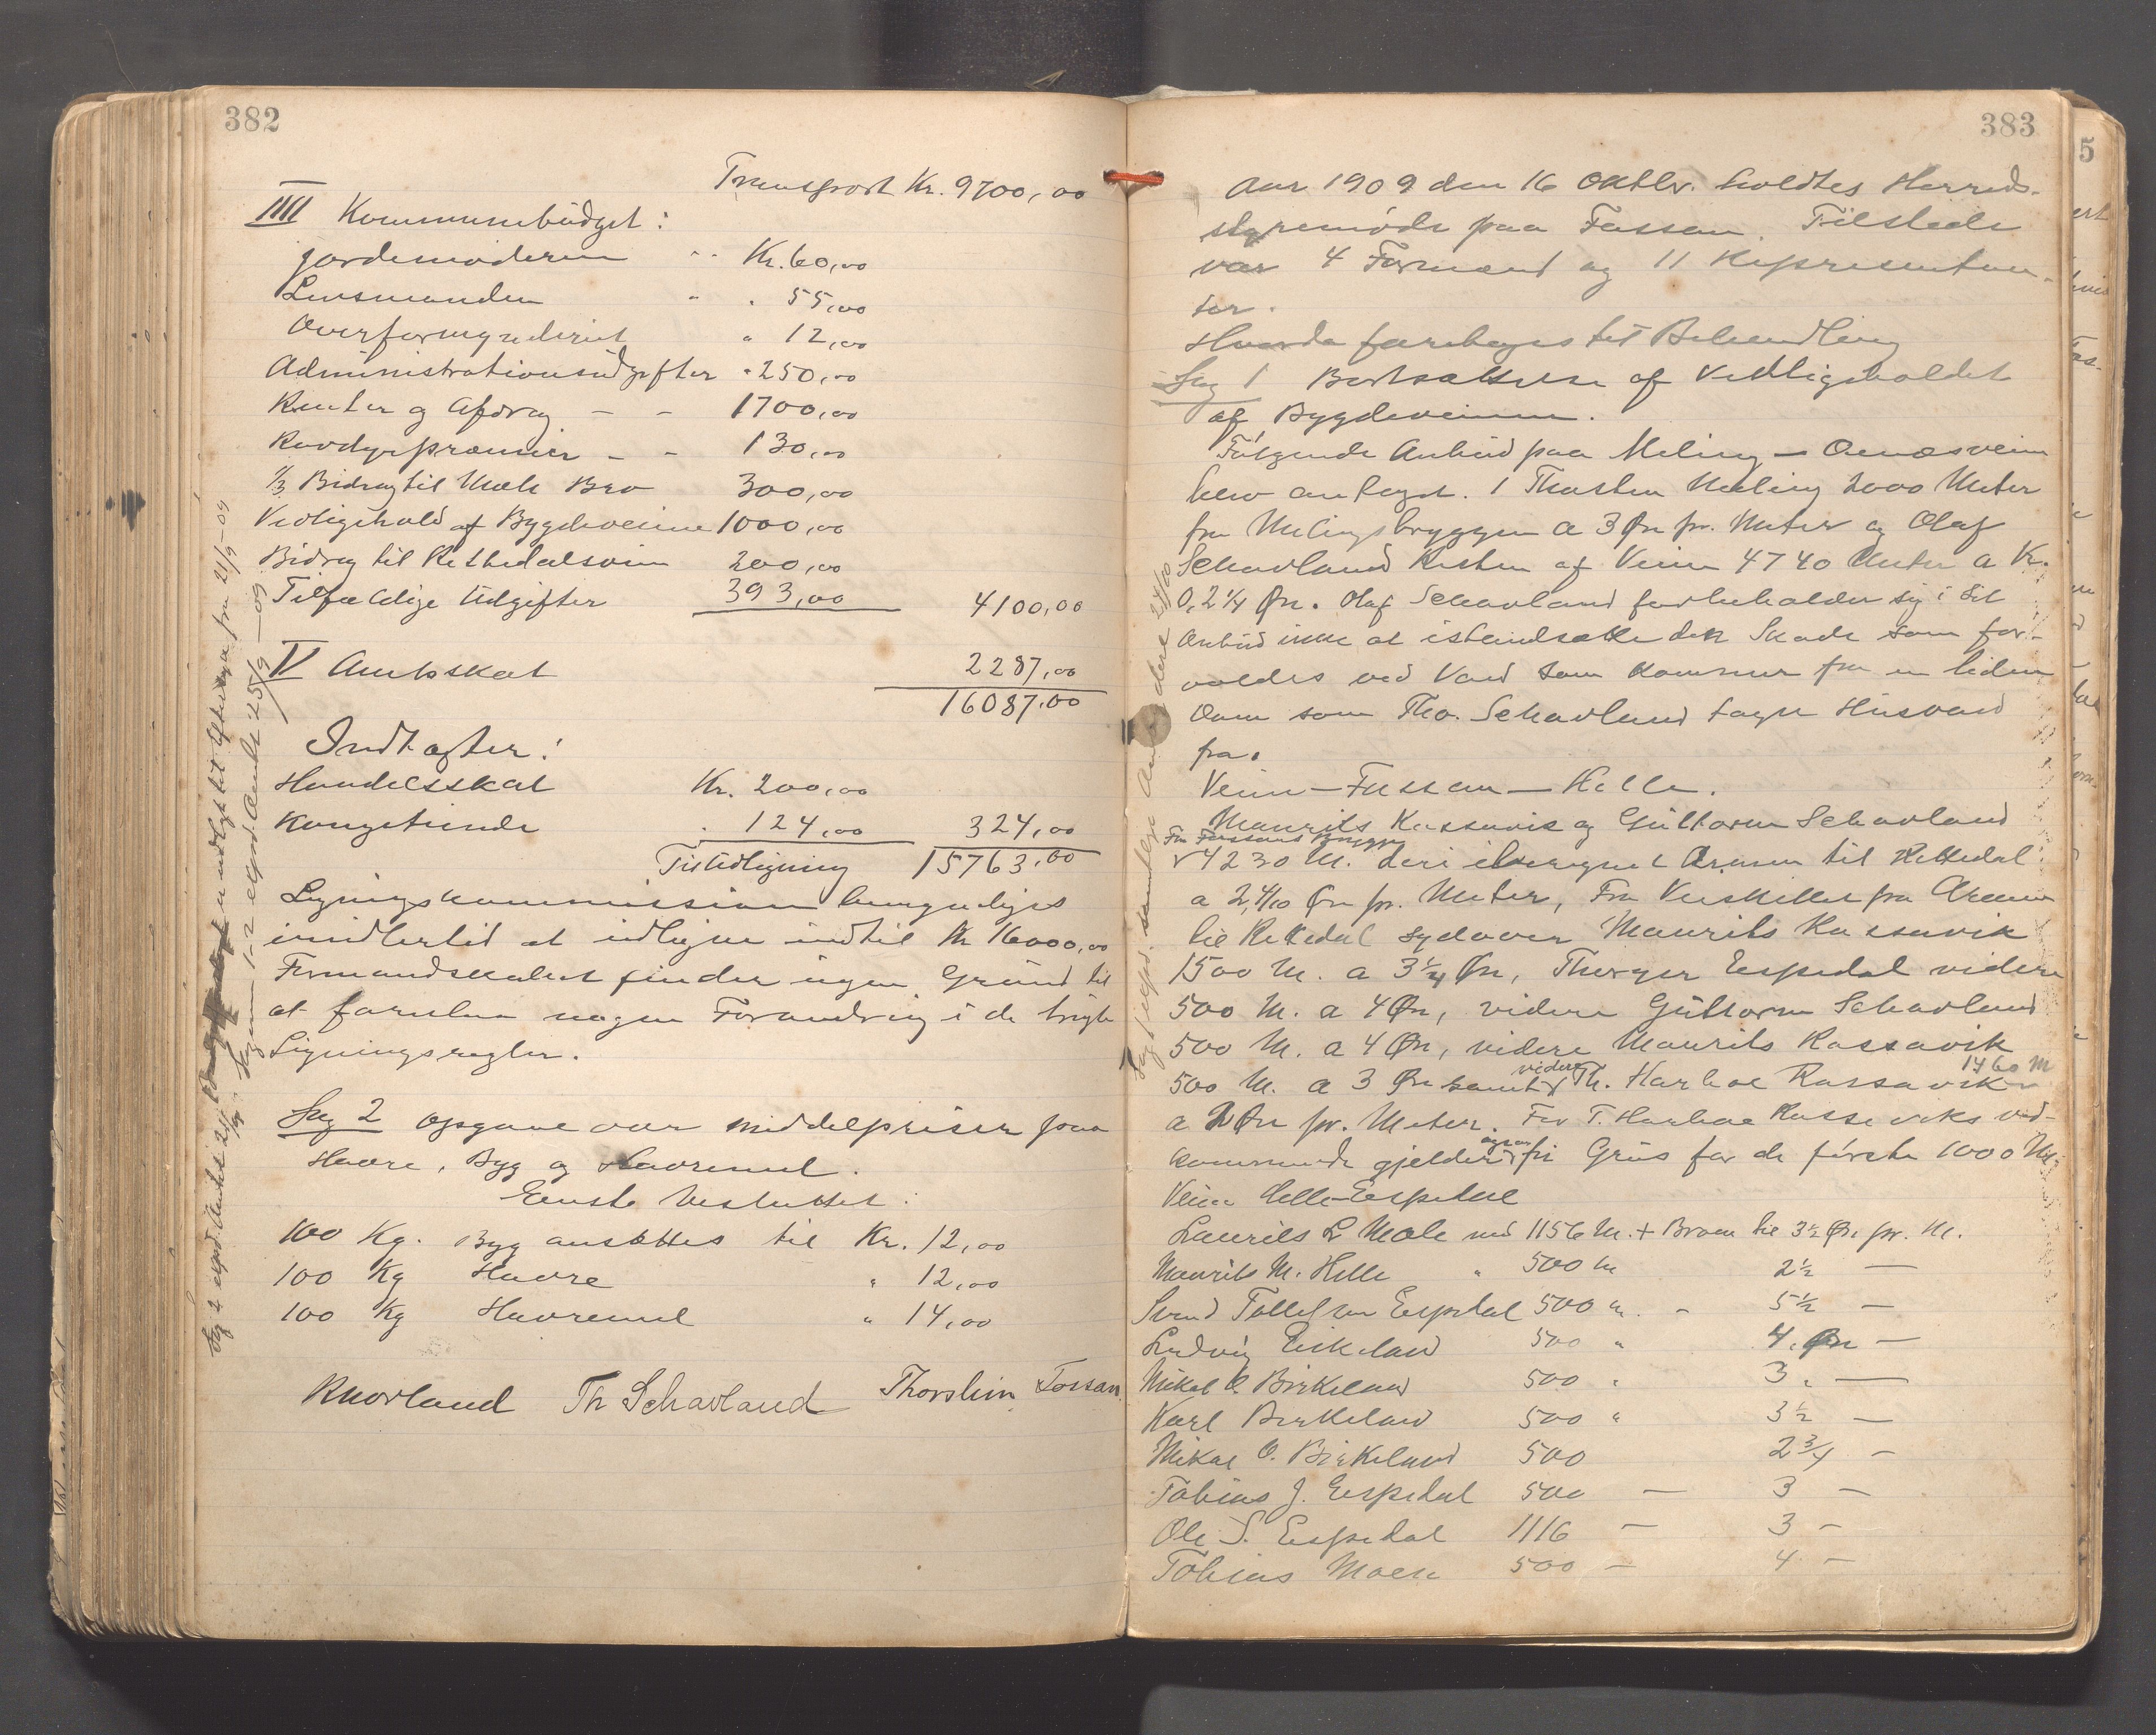 382
Transport Kr. 9700,00
IIII Kommunebudget:
Jordemoderen " Kr. 60,00
Lensmanden " " 55,00
Overformynderiet " 12,00
Administrationsudgifter " 250,00
Renter og Afdrag – – 1700,00
Rovdyrpræmier – – 130,00
1/3 Bidrag til Mæle Bro 300,00
Vedligehold af Bygdeveiene 1000,00
Bidrag til Rettedalsvein 200,00
Tilfældige Udgifter 393,00 4100,00
V Amtsskat 2287,00
16087,00
Indtægter:
Handelsskat Kr. 200,00
Kongetiende " 124,00 324,00
Til Udligning 15763,00
Ligningskommissionen bemyndiges
imidlertid at udligne indtil Kr 16000,00
Formandskabet finder ingen Grund til
at foreslaa nogen Forandring i de brugte
Ligningsregler.
Sag 2 Opgave over Middelpriser paa
Havre, Byg og Havremel.
Eenst. Besluttet:
100 Kg. Byg ansættes til Kr. 12,00
100 Kg Havre " 12,00
100 Kg Havremel " 14,00
RNorland Th Schavland Thorstein Fossan
383
Aar 1909 den 16 Oktbr. holdtes Herreds-
styremøde paa Fossan. Tilstede
var 4 Formænd og 11 Repræsentan-
ter.
Hvorda foretages til Behandling
Sag 1 Bortsættelse af Vedligeholdet
af Bygdeveiene.
Følgende Anbud paa Meling – Oenæsveien
blev antaget. 1 Thorsten Meling 2000 Meter
fra Melingsbryggen a 3 Øre pr. Meter og Olaf
Schavland Resten af Veien 4740 Meter a Kr.
0,2 1/4 Øre. Olaf Schavland forbeholder sig i sit
Anbud ikke at istandsætte den Skade som for-
voldes ved Vand som kommer fra en liden
Dam som Tho. Schavland tager Husvand
fra.
Veien – Fossan – Helle.
Maurits Rassavik og Guttorm Schavland
Fra Fossans Brygge
4230 M. deri iberegnet Armen til Rettedal
a 2,4/10 Øre pr. Meter, Fra Veiskillet fra Armen
til Rettedal sydover Maurits Rassavik
1500 M. a 3 1/4 Øre, Thorger Espedal videre
500 M. a 4 Øre, videre Guttorm Schavland
500 M. a 4 Øre, videre Maurits Rassavik
500 M. a 3 Øre samt videre Th. Harboe Rassavik 1460 M
a 2 Øre pr. Meter. For T. Harboe Rassaviks ved-
kommende gjelder ogsaa fri Grus for de første 1000 M.
Veien Helle–Espedal
Laurits L Mæle ved 1156 M. + Broen til 3 1/2 Øre pr. M.
Maurits M. Helle " 500 M 2 1/2 —
Svend Tollefsen Espedal 500 m. – 5 1/2 —
Ludvig Eikeland 500 " 4. Øre —
Mikal O. Birkeland 500 " 3. —
Karl Birkeland 500 " 3 1/2 —
Mikal O. Birkeland 500 2 3/4 –
Tobias J. Espedal 500 — 3 –
Ole S. Espedal 1116 – 3 –
Tobias Moen 500 – 4 –